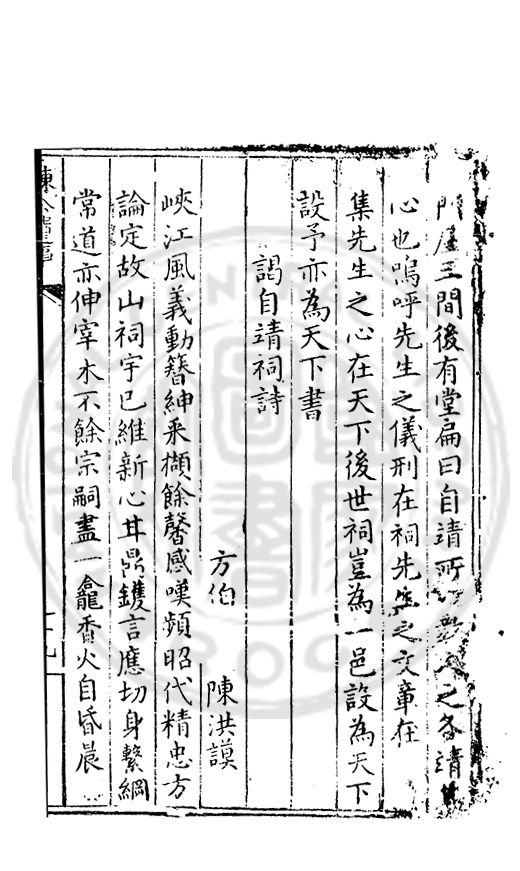 門屋三間後有堂扁曰自靖所之各靖其
心也嗚呼先生之儀刑在祠先生之文章在
集先生之心在天下後世祠豈為一邑設為天下
設予亦為天下書
謁自靖祠詩
方伯 陳洪謨
峽江風義動簪紳采擷餘馨感嘆頻昭代精忠方
論定故山祠宇已維新心甘鼎鑊言應切身繫綱
常道亦伸宰木不餘宗嗣盡一龕香火自昏晨